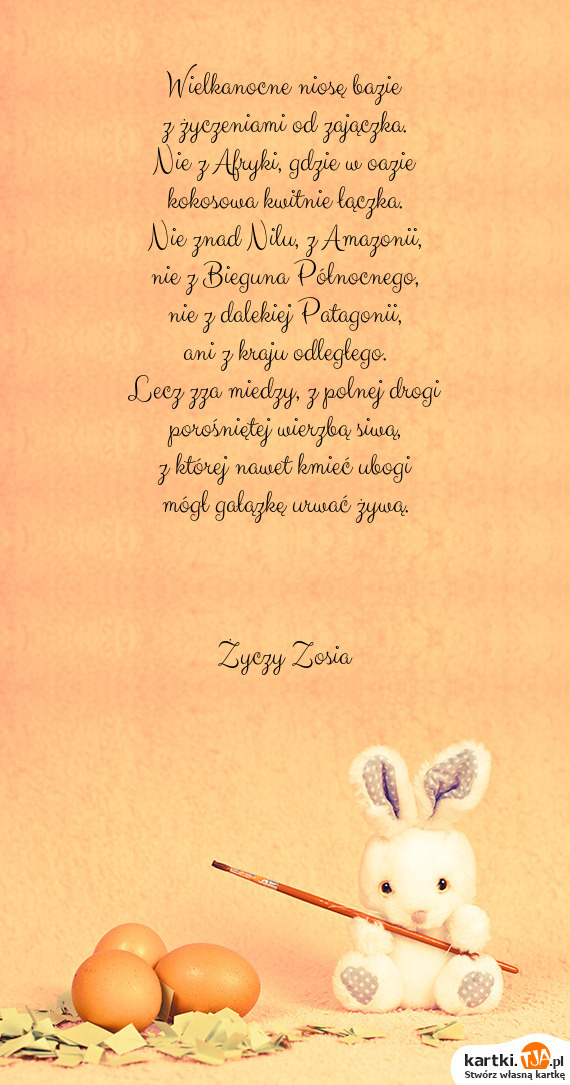 Wielkanocne niosę bazie
z życzeniami od zajączka.
Nie z Afryki, gdzie w oazie
kokosowa kwitnie łączka.
Nie znad Nilu, z Amazonii,
nie z Bieguna Północnego,
nie z dalekiej Patagonii,
ani z kraju odległego.
Lecz zza miedzy, z polnej drogi
porośniętej wierzbą siwą,
z której nawet kmieć ubogi
mógł gałązkę urwać żywą.
Życzy Zosia
kartki.TJA.pl
Stwórz własną kartkę